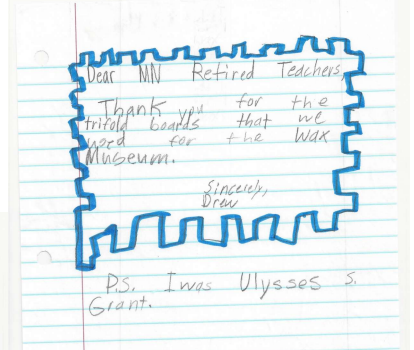 Dear MN Retired Teachers,
Thank you for the
trifold boards that we
used for the Wax
Museum.
Sincerely,
Drew
P.S. I was Ulysses S.
Grant.